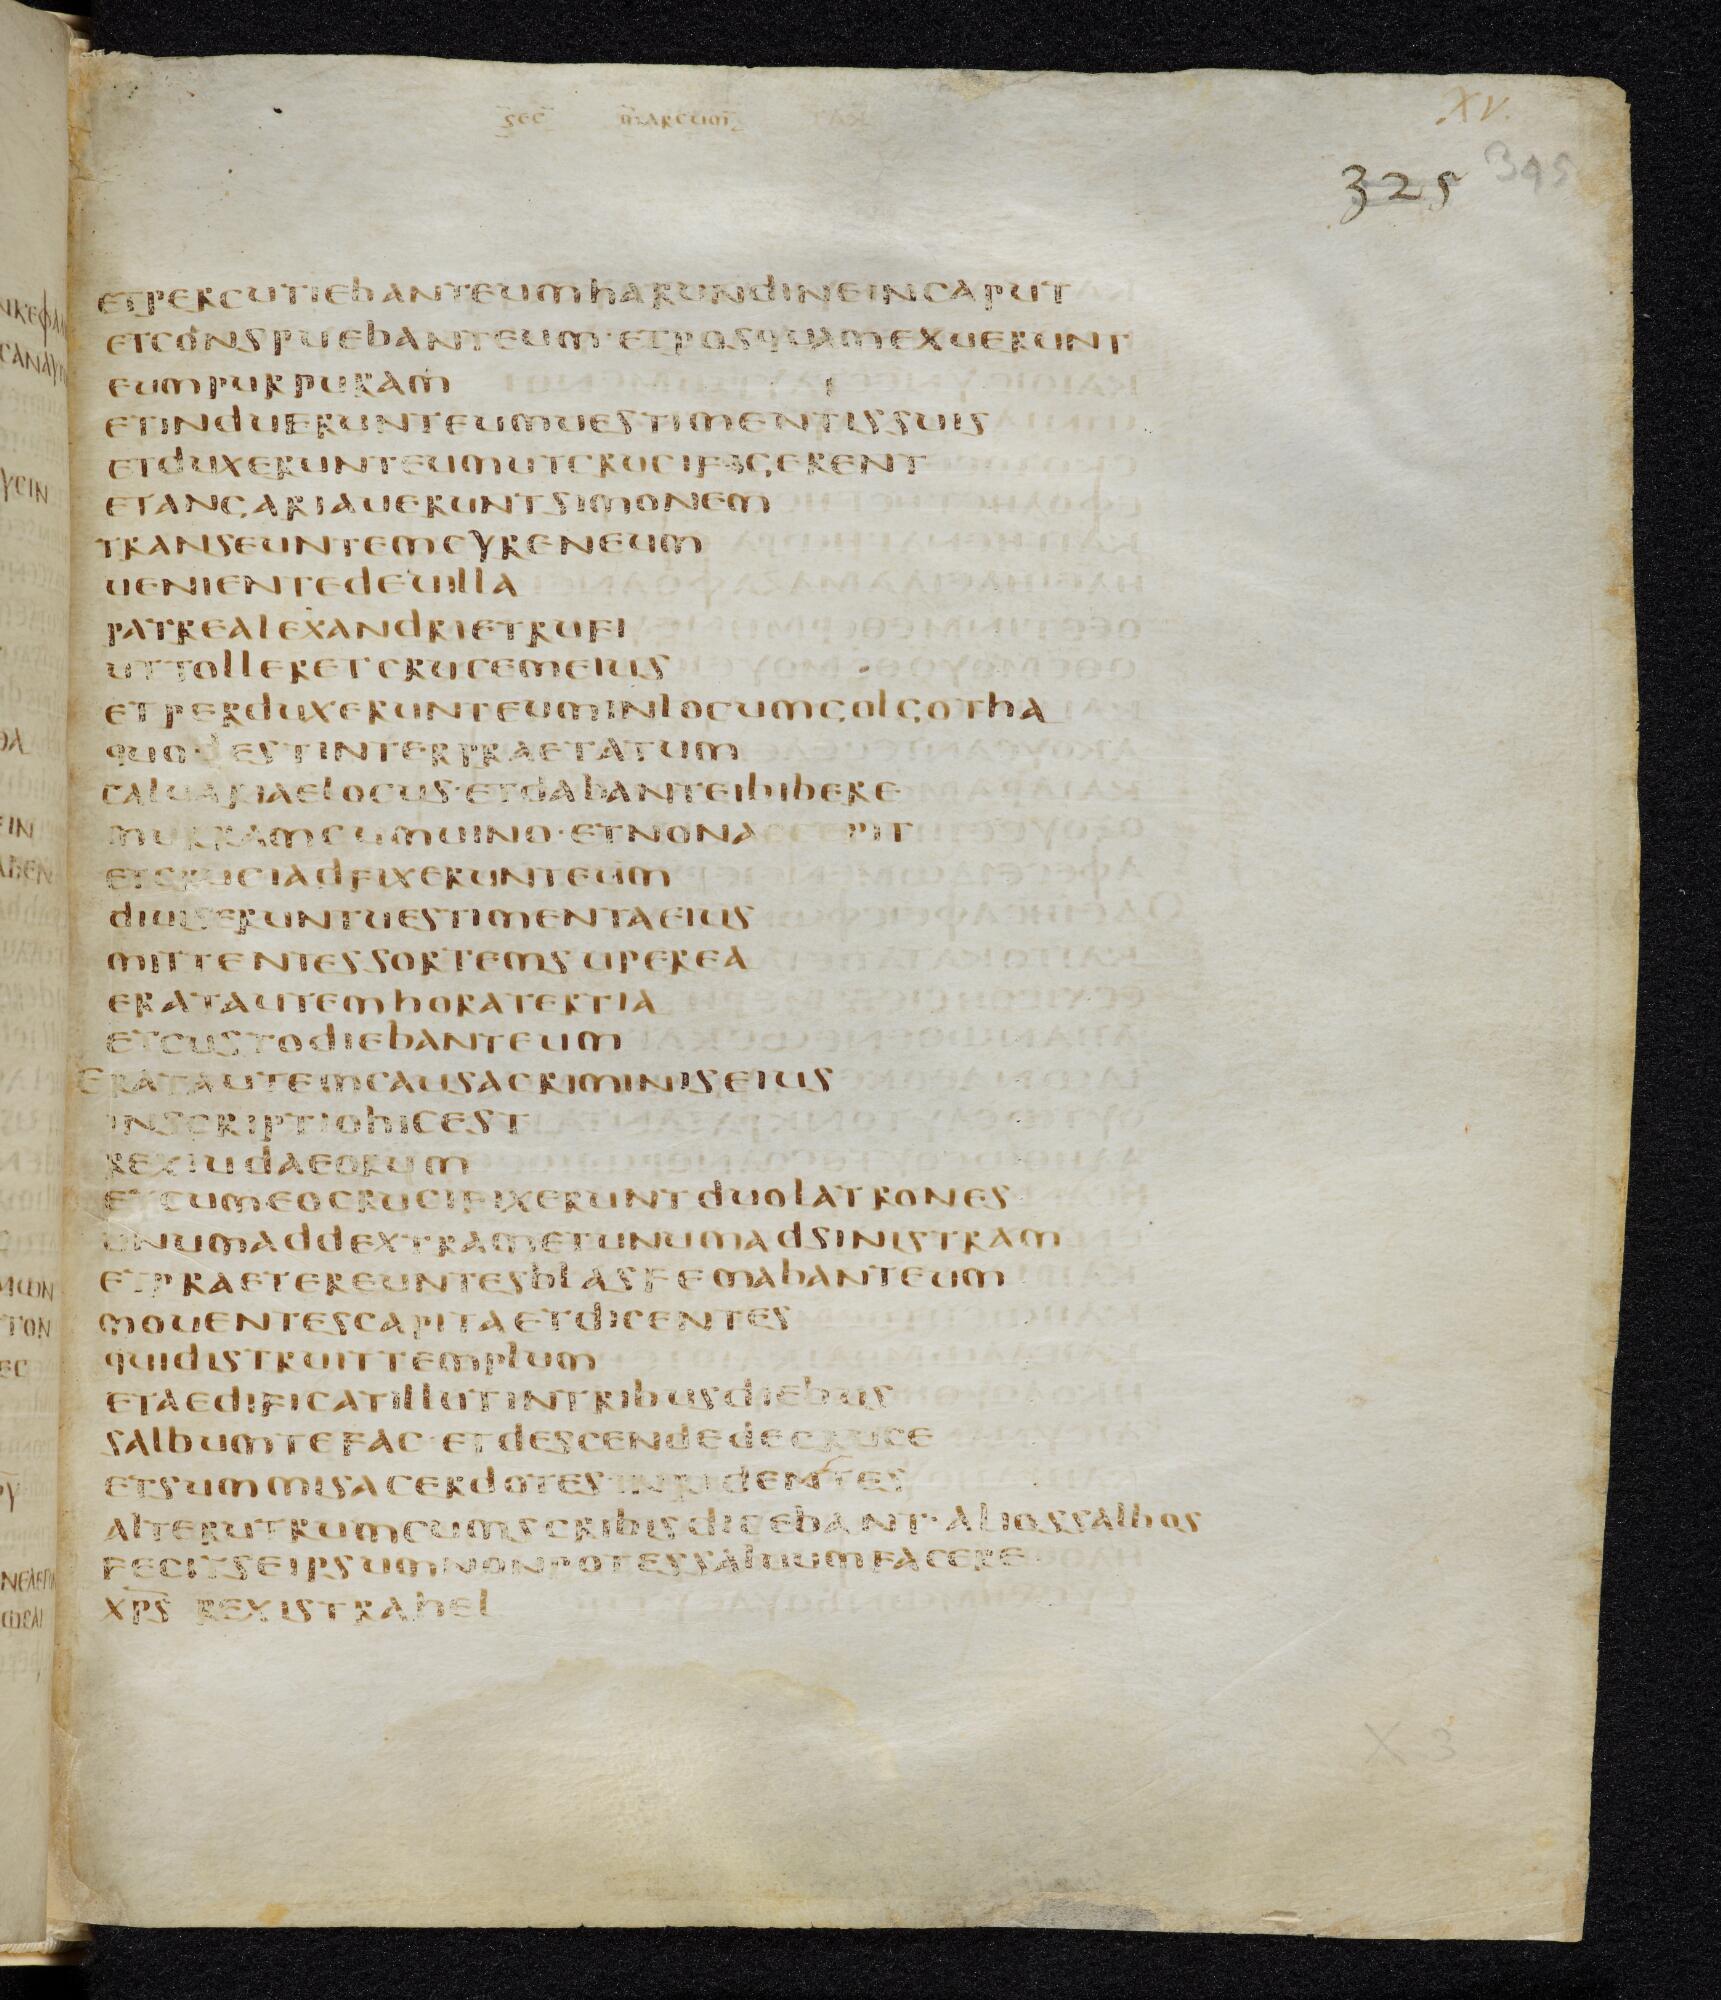 sec marcum
XV.
325 345
etpercutiebanteumharundineincaput
etconspuebanteum · etposquamexuerunt
eumpurpuram
etinduerunteumuestimentissuis
etduxerunteumutcrucifigerent
etangariaueruntsimonem
transeuntemcyreneum
uenientedeuilla
patrealexandrietrufi
uttolleretcrucemeius
etperduxerunteuminlocumgolgotha
quodestinterpraetatum
caluariaelocus · etdabanteibibere
murramcumuino · etnonaccepit
etcruciadfixerunteum
diuiseruntuestimentaeius
mittentessortemsuperea
eratautemhoratertia
etcustodiebanteum
Eratautemcausacriminiseius
inscriptiohicest
rexiudaeorum
etcumeocrucifixeruntduolatrones
unumaddextrametunumadsinistram
etpraetereuntesblasfemabanteum
mouentescapitaetdicentes
quidistruittemplum
etaedificatillutintribusdiebus
salbumtefac · etdescendedecruce
etsummisacerdotes
alterutrumcumscribisdicebant · aliossalbos
fecitseipsumnonpotessaluumfacere
xps rexistrahel
X 3